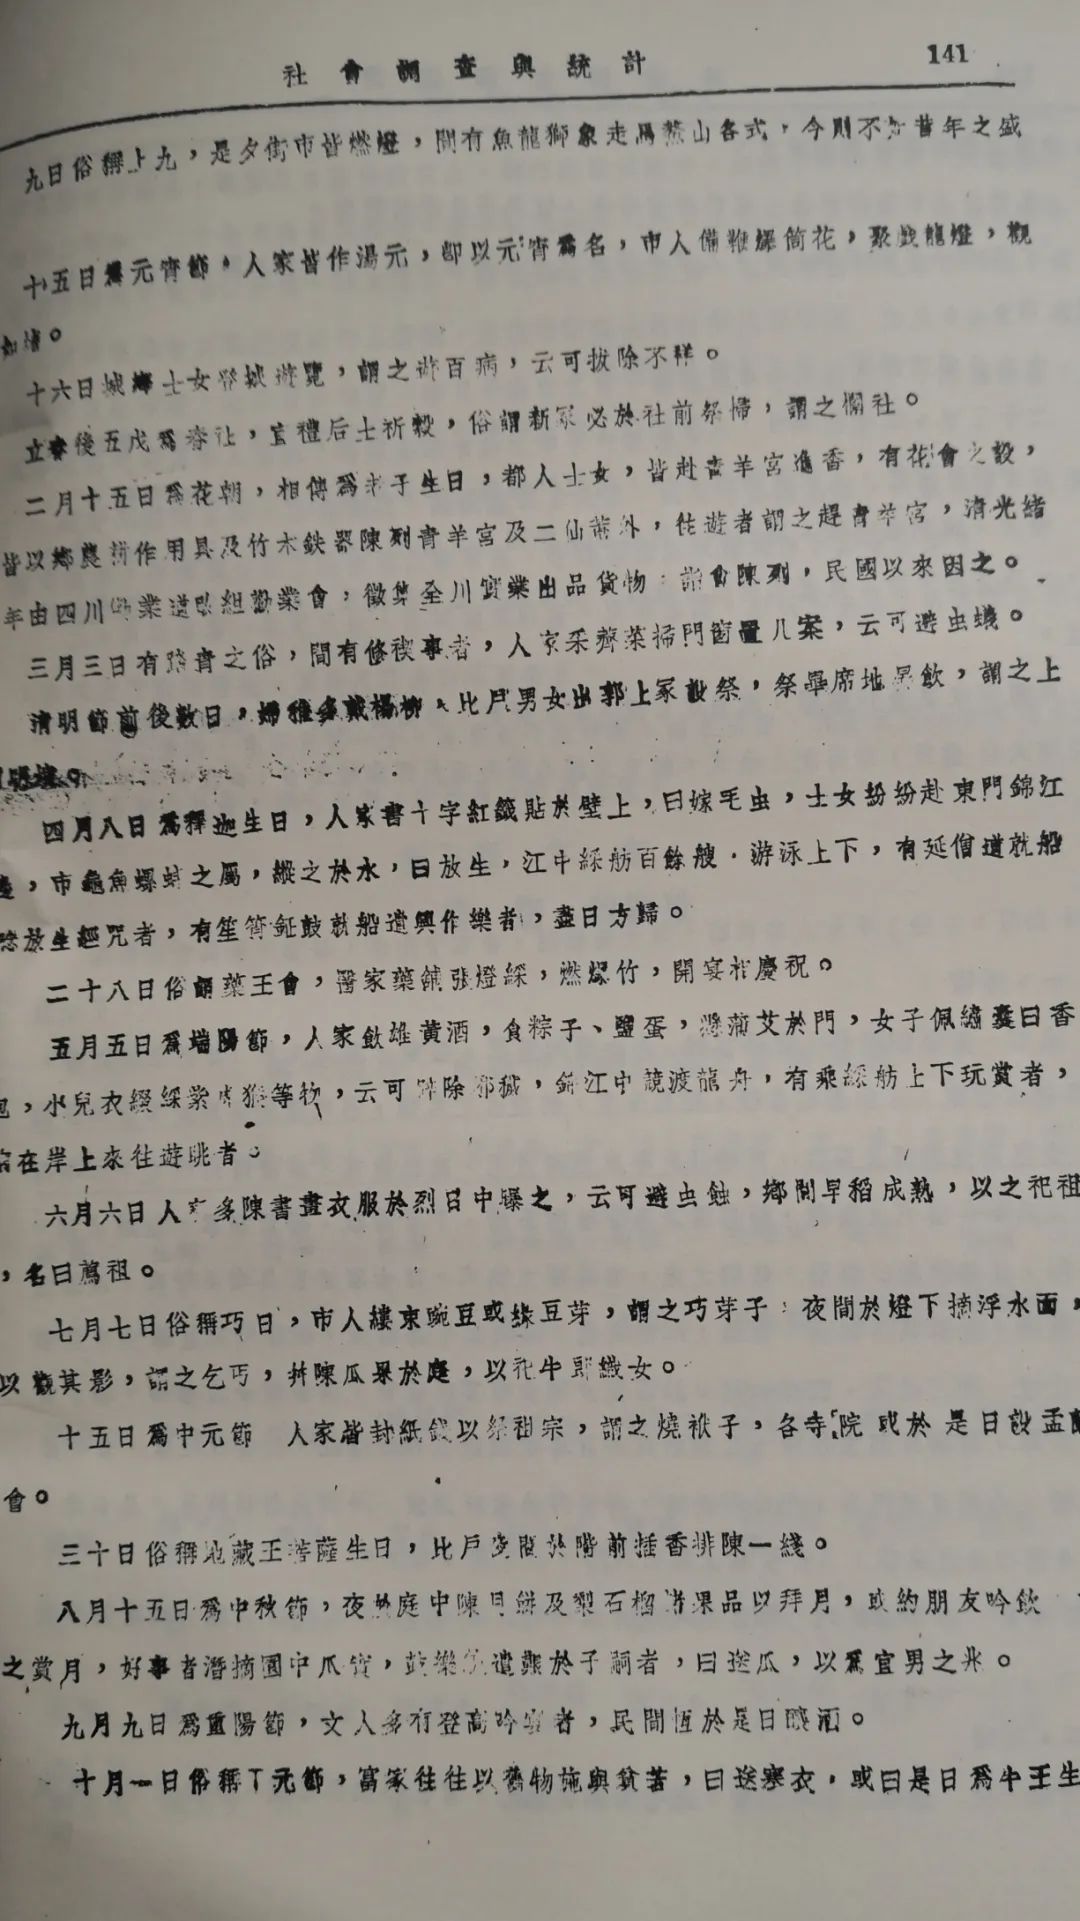 社會調查與統計 141
九日俗稱上九，是夕街市皆燃燈，間有魚龍獅象走馬鰲山各式，今則不如昔年之盛
十五日爲元宵節，人家皆作湯元，卽以元宵爲名，市人備鞭爆筒花，聚戲龍燈，觀
如堵。
十六日城鄉士女登城遊覽，謂之游百病，云可拔除不祥。
立春後五戊爲春社，官禮后土祈穀，俗謂新冢必於社前祭掃，謂之攔社。
二月十五日爲花朝，相傳爲老子生日，都人士女，皆赴靑羊宮進香，有花會之設，
皆以鄉農耕作用具及竹木鉄器陳列靑羊宮及二仙菴外，往遊者謂之趕靑羊宮，淸光緒
年由四川勸業道 組勸業會，徵集全川實業出品貨物 會陳列，民國以來因之。
三月三日有踏靑之俗，間有修禊事者，人家采薺菜掃門窗置几案，云可避虫蟻。
淸明節前後數日，婦稚多戴楊柳、比戶男女出郭上冢設祭，祭畢席地 飲，謂之上
。
四月八日爲釋迦生日，人家書十字紅籤貼於壁上，曰嫁毛虫，士女紛紛赴東門錦江
，市龜魚螺蚌之屬，縱之於水，曰放生，江中綵舫百餘艘，游泳上下，有延僧道就船
唸放生經咒者，有笙簫鉦鼓就船遣興作樂者，盡日方歸。
二十八日俗謂藥王會，醫家藥舖張燈綵，燃爆竹，開宴相慶祝。
五月五日爲端陽節，人家飲雄黃酒，食粽子、鹽蛋，懸蒲艾於門，女子佩繡囊曰香
包，小兒衣綴綵 猴等物，云可辟除邪穢，錦江中競渡龍舟，有乘綵舫上下玩賞者，
在岸上來往遊眺者。
六月六日人家多陳書畫衣服於烈日中曝之，云可避虫蝕，鄉間早稻成熟，以之祀祖
，名曰薦祖。
七月七日俗稱巧日，市人縷束豌豆或綠豆芽，謂之巧芽子，夜間於燈下摘浮水面，
以觀其影，謂之乞丐，幷陳瓜果於庭，以祀牛郎織女。
十五日爲中元節 人家皆封紙錢以祭祖宗，謂之燒袱子，各寺院或於是日設盂蘭
會。
三十日俗稱地藏王菩薩生日，比戶 於階前插香排陳一綫。
八月十五日爲中秋節，夜於庭中陳月餅及梨石榴諸果品以拜月，或約朋友吟飲
之賞月，好事者潛摘園中瓜實，鼓樂 遺艱於子嗣者，曰送瓜，以爲宜男之兆。
九月九日爲重陽節，文人多有登高吟 者，民間恆於是日釀酒。
十月一日俗稱下元節，富家往往以舊物施與貧苦，曰送寒衣，或曰是日爲牛王生